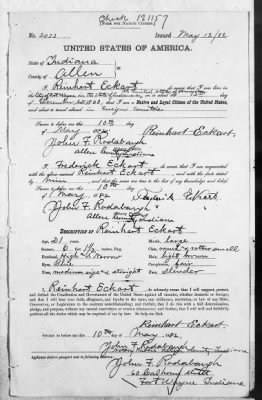 Check 121157
[FORM FOR NATIVE CITIZEN.]
No. 2022 Issued May 12/82
UNITED STATES OF AMERICA.
State of Indiana
County of Allen
I, Reinhart Eckart do swear that I was born in
December 1860, that I am a Native and Loyal Citizen of the United States,
and about to travel abroad in foreign countries
Sworn to before me this 10th day
of May 1882 Reinhart Eckart
John F. Rodabaugh
Allen County Indiana
I, Frederick Eckart do swear that I am acquainted
with the above-named Reinhart Eckart, and with the facts stated
by him, and that the same are true to the best of my knowledge and belief.
Sworn to before me this 10th day
of May 1882 Frederick Eckart
John F. Rodabaugh
Allen County Indiana
DESCRIPTION OF Reinhart Eckart
Age, 21 years. Mouth: large
Stature: 6 ft 1½ inches, Eng. Chin: round & rather small
Forehead: High & Narrow Hair: light brown
Eyes: Complexion: fair
Nose: medium size & straight Face: slender
I, Reinhart Eckart do solemnly swear that I will support, protect,
and defend the Constitution and Government of the United States against all enemies, whether domestic or foreign;
and that I will bear true faith, allegiance, and loyalty to the same, any ordinance, resolution, or law of any State,
Convention, or Legislature to the contrary notwithstanding; and further, that I do this with a full determination,
pledge, and purpose, without any mental reservation or evasion whatsoever; and further, that I will well and faithfully
perform all the duties which may be required of me by law: So help me God.
Reinhart Eckart
Sworn to before me this 10th day
of May 1882
John F. Rodabaugh
Applicant desires passport sent to following address:
John F. Rodabaugh
Calhoun street
Fort Wayne Indiana